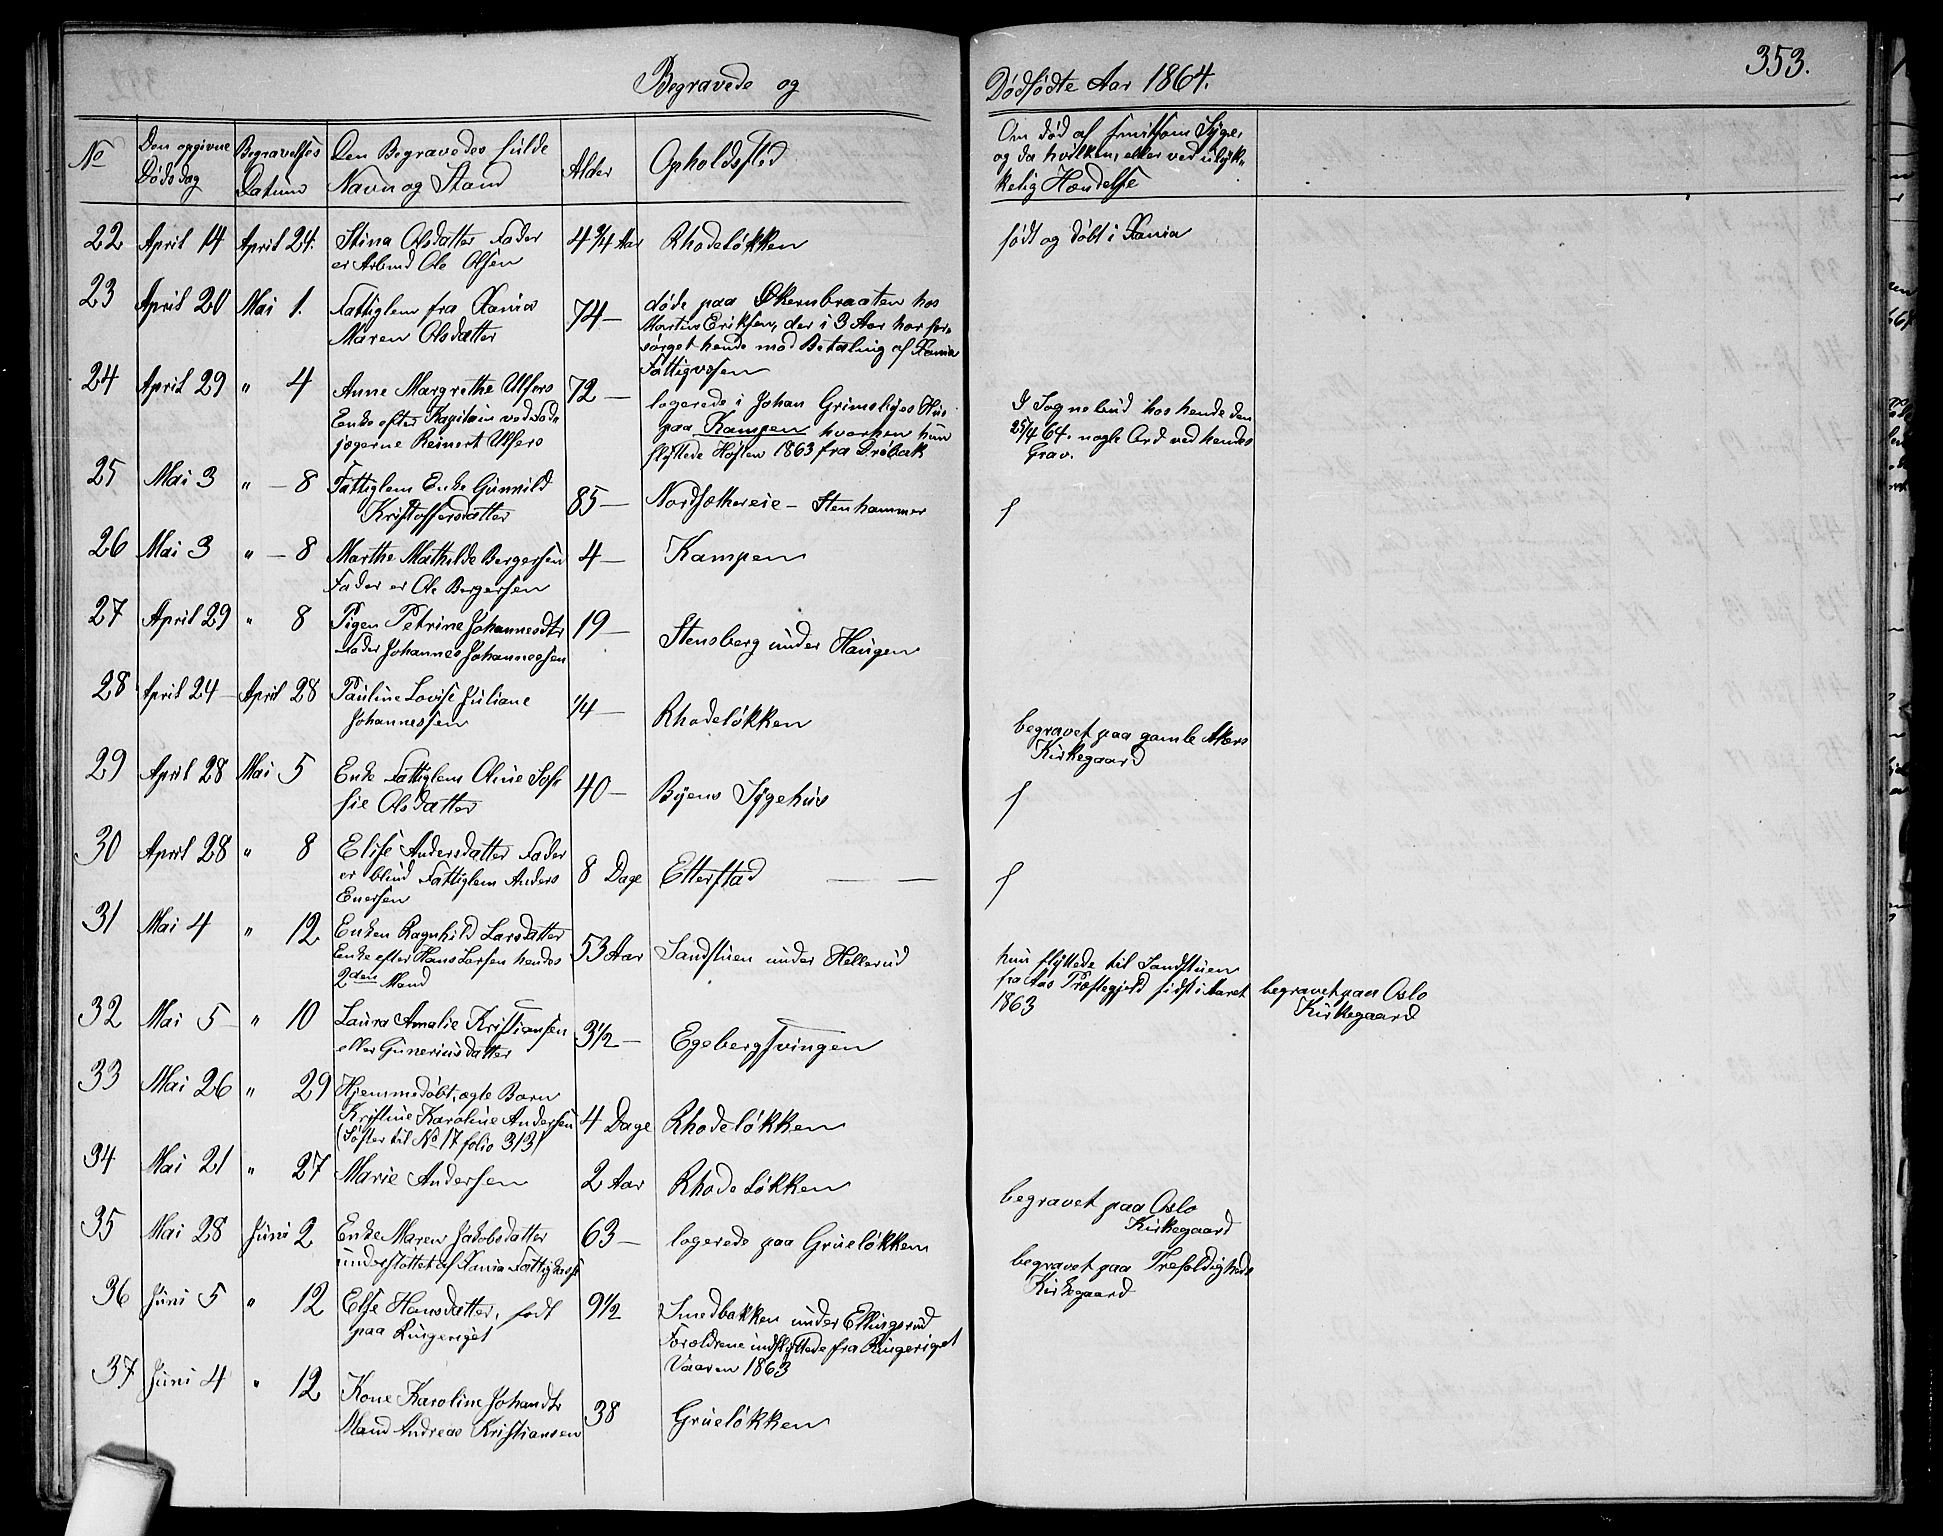 Begravede og
Dødfødte Aar 1864.
353.
No
Den opgivne Dødsdag
Begravelses Datum
Den Begravedes fulde Navn og Stand
Alder
Opholdssted
Om død af smitsom Syge,
og da hvilken, eller ved ulyk-
kelig Hændelse
22 April 14 April 24. Stina Olsdatter Fader 4 3/4 Aar Rhodeløkken født og døbt i Xania
er Arbmd Ole Olsen
23 April 20 Mai 1. Fattiglem fra Xania 74 — døde paa Økernbraaten hos
Maren Olsdatter Martin Eriksen, der i 3 Aar har for-
sørget hende mod Betaling af Xania
Fattigvæsen
24 April 29 " 4 Anne Margrethe Ulfers 72 — logerede i Johan Grimslyes Hus I Sognebud hos hende den
Enke efter Kapitain ved Fod- paa Kampen hvorhen hun 25/4 64. nogle Ord ved hendes
jægerne Reinert Ulfers flyttede Høsten 1863 fra Drøbak Grav.
25 Mai 3 " — 8 Fattiglem Enke Gunnild 85 — Nordsethereie — Stenhammer f
Kristoffersdatter
26 Mai 3 " — 8 Marthe Mathilde Bergersen 4 — Kampen
Fader er Ole Bergersen
27 April 29 " 8 Pigen Petrine Johannesdtr 19 — Stensberg under Haugen
Fader Johannes Johannessen
28 April 24 — April 28 Pauline Lovise Juliane 1/4 — Rhodeløkken begravet paa gamle Akers
Johannessen Kirkegaard
29 April 28 Mai 5 Enke Fattiglem Oline Sof- 40 — Byens Sygehus f
fie Olsdatter
30 April 28 " 8 Elise Andersdatter Fader 8 Dage Etterstad — — f
er blind Fattiglem Anders
Enersen
31 Mai 4 " 12 Enken Ragnhild Larsdatter 53 Aar Sandstuen under Hellerud hun flyttede til Sandstuen
Enke efter Hans Larsen hendes fra Aas Præstegjeld sidst i Aaret begravet paa Oslo
2den Mand 1863 Kirkegaard
32 Mai 5 — " 10 Laura Amalie Kristiansen 3 1/2 — Egebergsvingen
eller Gunerius datter
33 Mai 26 " 29 Hjemmedøbt, ægte Barn 4 Dage Rhodeløkken
Kristine Karoline Andersen
(Søster til No 17 folio 313)
34 Mai 21 " 27 Marie Andersen 2 Aar Rhodeløkken begravet paa Oslo
Kirkegaard
35 Mai 28 Juni 2 Enke Maren Jakobsdatter 63 — logerede paa Grueløkken begravet paa Trefoldigheds
understøttet af Xania Fattigkasse Kirkegaard
36 Juni 5 " 12 Else Hansdatter, født 9 1/2 Smedbakken under Ellingsrud
paa Ringeriget Forældrene indflyttede fra Ringeriget
Vaaren 1863
37 Juni 4 " 12 Kone Karoline Johansdtr 38 Grueløkken
Mand Andreas Kristiansen